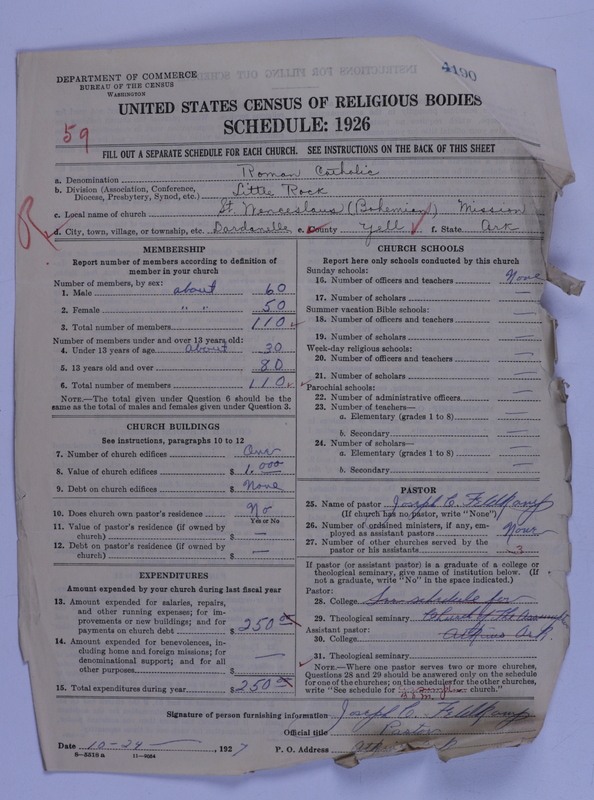 4100
DEPARTMENT OF COMMERCE
BUREAU OF THE CENSUS
WASHINGTON
UNITED STATES CENSUS OF RELIGIOUS BODIES
SCHEDULE: 1926
59
FILL OUT A SEPARATE SCHEDULE FOR EACH CHURCH. SEE INSTRUCTIONS ON THE BACK OF THIS SHEET
a. Denomination Roman Catholic
b. Division (Association, Conference, Diocese, Presbytery, Synod, etc.) Little Rock
c. Local name of church St. Wenceslaus (Bohemian) Mission
d. City, town, village, or township, etc. Dardanelle e. County Yell f. State Ark
MEMBERSHIP
Report number of members according to definition of
member in your church
Number of members, by sex:
1. Male about 60
2. Female " " 50
3. Total number of members 110
Number of members under and over 13 years old:
4. Under 13 years of age about 30
5. 13 years old and over 80
6. Total number of members 110
NOTE.—The total given under Question 6 should be
same as the total of males and females given under Question 3.
CHURCH BUILDINGS
See instructions, paragraphs 10 to 12
7. Number of church edifices One
8. Value of church edifices $ 1.000
9. Debt on church edifices $ None
10. Does church own pastor's residence No
Yes or No
11. Value of pastor's residence (if owned by
church) $ —
12. Debt on pastor's residence (if owned by
church) $ —
EXPENDITURES
Amount expended by your church during last fiscal year
13. Amount expended for salaries, repairs,
and other running expenses; for improvements
or new buildings; and for
payments on church debt $ 250.00
14. Amount expended for benevolences, including
home and foreign missions; for
denominational support; and for all
other purposes $ —
15. Total expenditures during year $ 250.00
CHURCH SCHOOLS
Report here only schools conducted by this church
Sunday schools:
16. Number of officers and teachers None
17. Number of scholars —
Summer vacation Bible schools:
18. Number of officers and teachers —
19. Number of scholars —
Week-day religious schools:
20. Number of officers and teachers —
21. Number of scholars —
Parochial schools:
22. Number of administrative officers —
23. Number of teachers—
a. Elementary (grades 1 to 8) —
b. Secondary —
24. Number of scholars—
a. Elementary (grades 1 to 8) —
b. Secondary —
PASTOR
25. Name of pastor Joseph C. Feldkamp
(If church has no pastor, write "None")
26. Number of ordained ministers, if any, employed
as assistant pastors None
27. Number of other churches served by the
pastor or his assistants 3
If pastor (or assistant pastor) is a graduate of a college or
theological seminary, give name of institution below. (If
not a graduate, write "No" in the space indicated.)
Pastor:
28. College See schedule for
29. Theological seminary Church of the Assumption
Assistant pastor: Atkins Ark.
30. College
31. Theological seminary
NOTE.—Where one pastor serves two or more churches,
Questions 28 and 29 should be answered only on the schedule
for one of the churches; on the schedules for the other churches,
write "See schedule for church."
Signature of person furnishing information Joseph C. Feldkamp
Official title Pastor
Date 10-24 —, 1927 P. O. Address Atkins
8—5518 a 11—9064